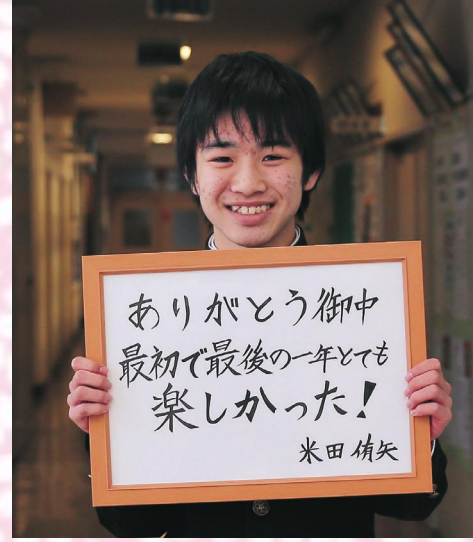 ありがとう御中
最初で最後の一年とても
楽しかった!
米田侑矢